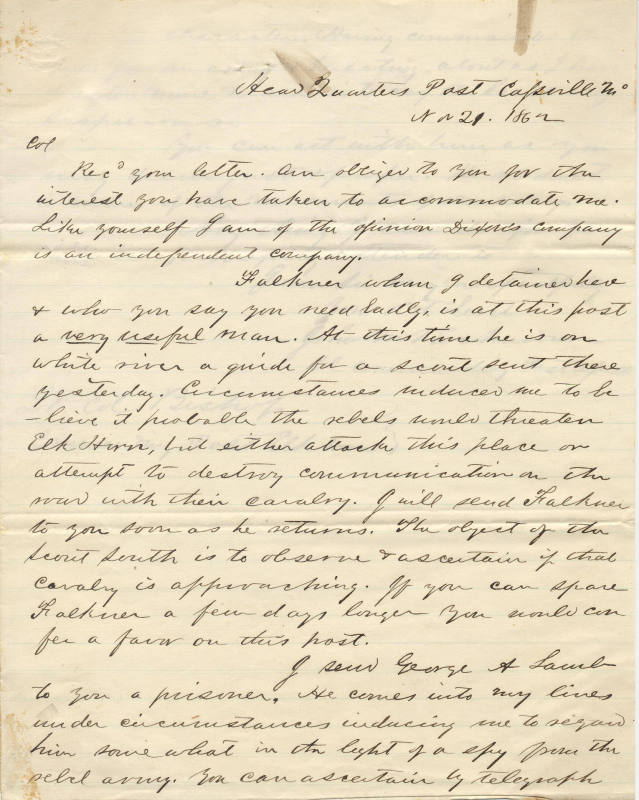 Head Quarters Post Cassville Mo
Nov 21. 1862
Col
Recd your letter. Am obliged to you for the
interest you have taken to accommodate me.
Like yourself I am of the opinion Dixons company
is an independent company.
Falkner whom I detained here
& who you say you need badly, is at this post
a very useful man. At this time he is on
white river a guide for a scout sent there
yesterday. Circumstances induced me to be
-lieve it probable the rebels would threaten
Elk Horn, but either attack this place or
attempt to destroy communication on the
road with their cavalry. I will send Falkner
to you soon as he returns. The object of the
scout south is to observe & ascertain if that
cavalry is approaching. If you can spare
Falkner a few days longer you would con
fer a favor on this post.
I send George A Lamb
to you a prisoner. He comes into my lines
under circumstances inducing me to regard
him some what in the light of a spy from the
rebel army. You can ascertain by telegraph